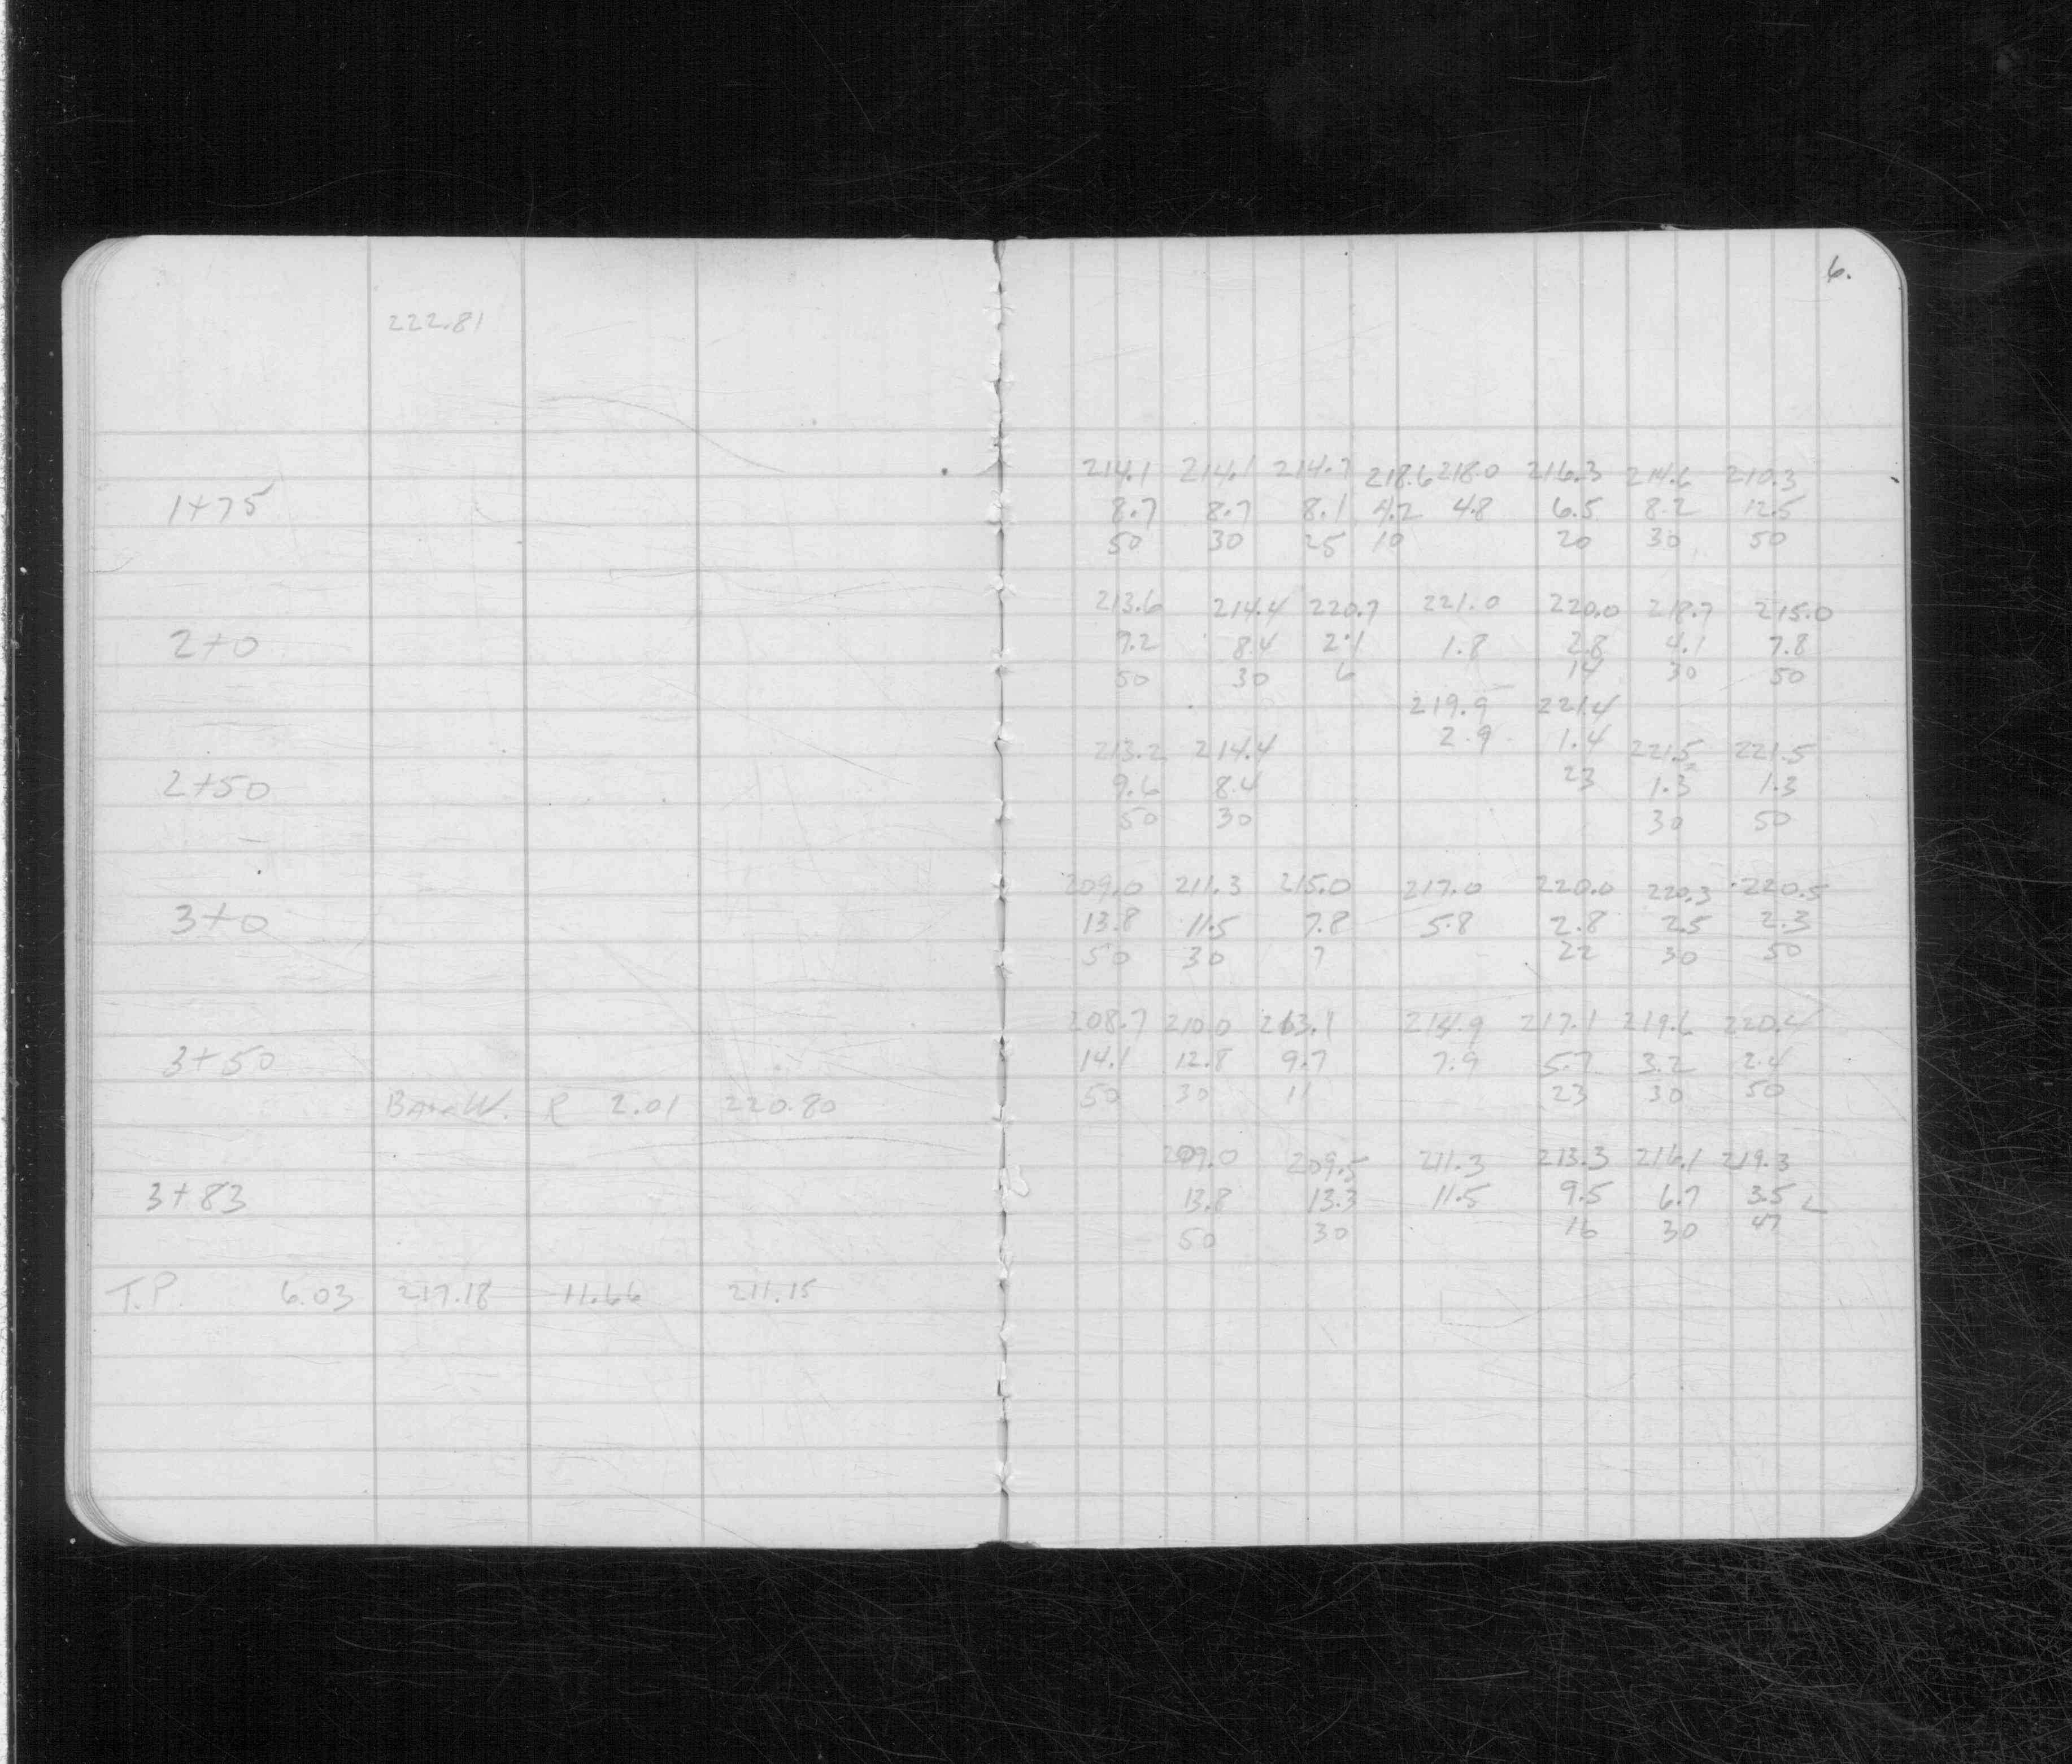 6.
222.81
214.1 214.1 214.7 218.6 218.0 216.3 214.6 210.3
1+75 8.7 8.7 8.1 4.2 4.8 6.5 8.2 12.5
50 30 25 10 20 30 50
213.6 214.4 220.7 221.0 220.0 218.7 215.0
2+0 9.2 8.4 2.1 1.8 2.8 4.1 7.8
50 30 6 14 30 50
219.9 221.4
2.9 1.4
213.2 214.4 221.5 221.5
23
2+50 9.6 8.4 1.3 1.3
50 30 30 50
209.0 211.3 215.0 217.0 220.0 220.3 220.5
3+0 13.8 11.5 7.8 5.8 2.8 2.5 2.3
50 30 7 22 30 50
208.7 210.0 213.1 214.9 217.1 219.6 220.4
3+50 14.1 12.8 9.7 7.9 5.7 3.2 2.4
50 30 11 23 30 50
W. R 2.01 220.80
209.0 209.5 211.3 213.3 216.1 219.3
3+83 13.8 13.3 11.5 9.5 6.7 3.5 L
50 30 16 30 47
T.P. 6.03 217.18 11.66 211.15